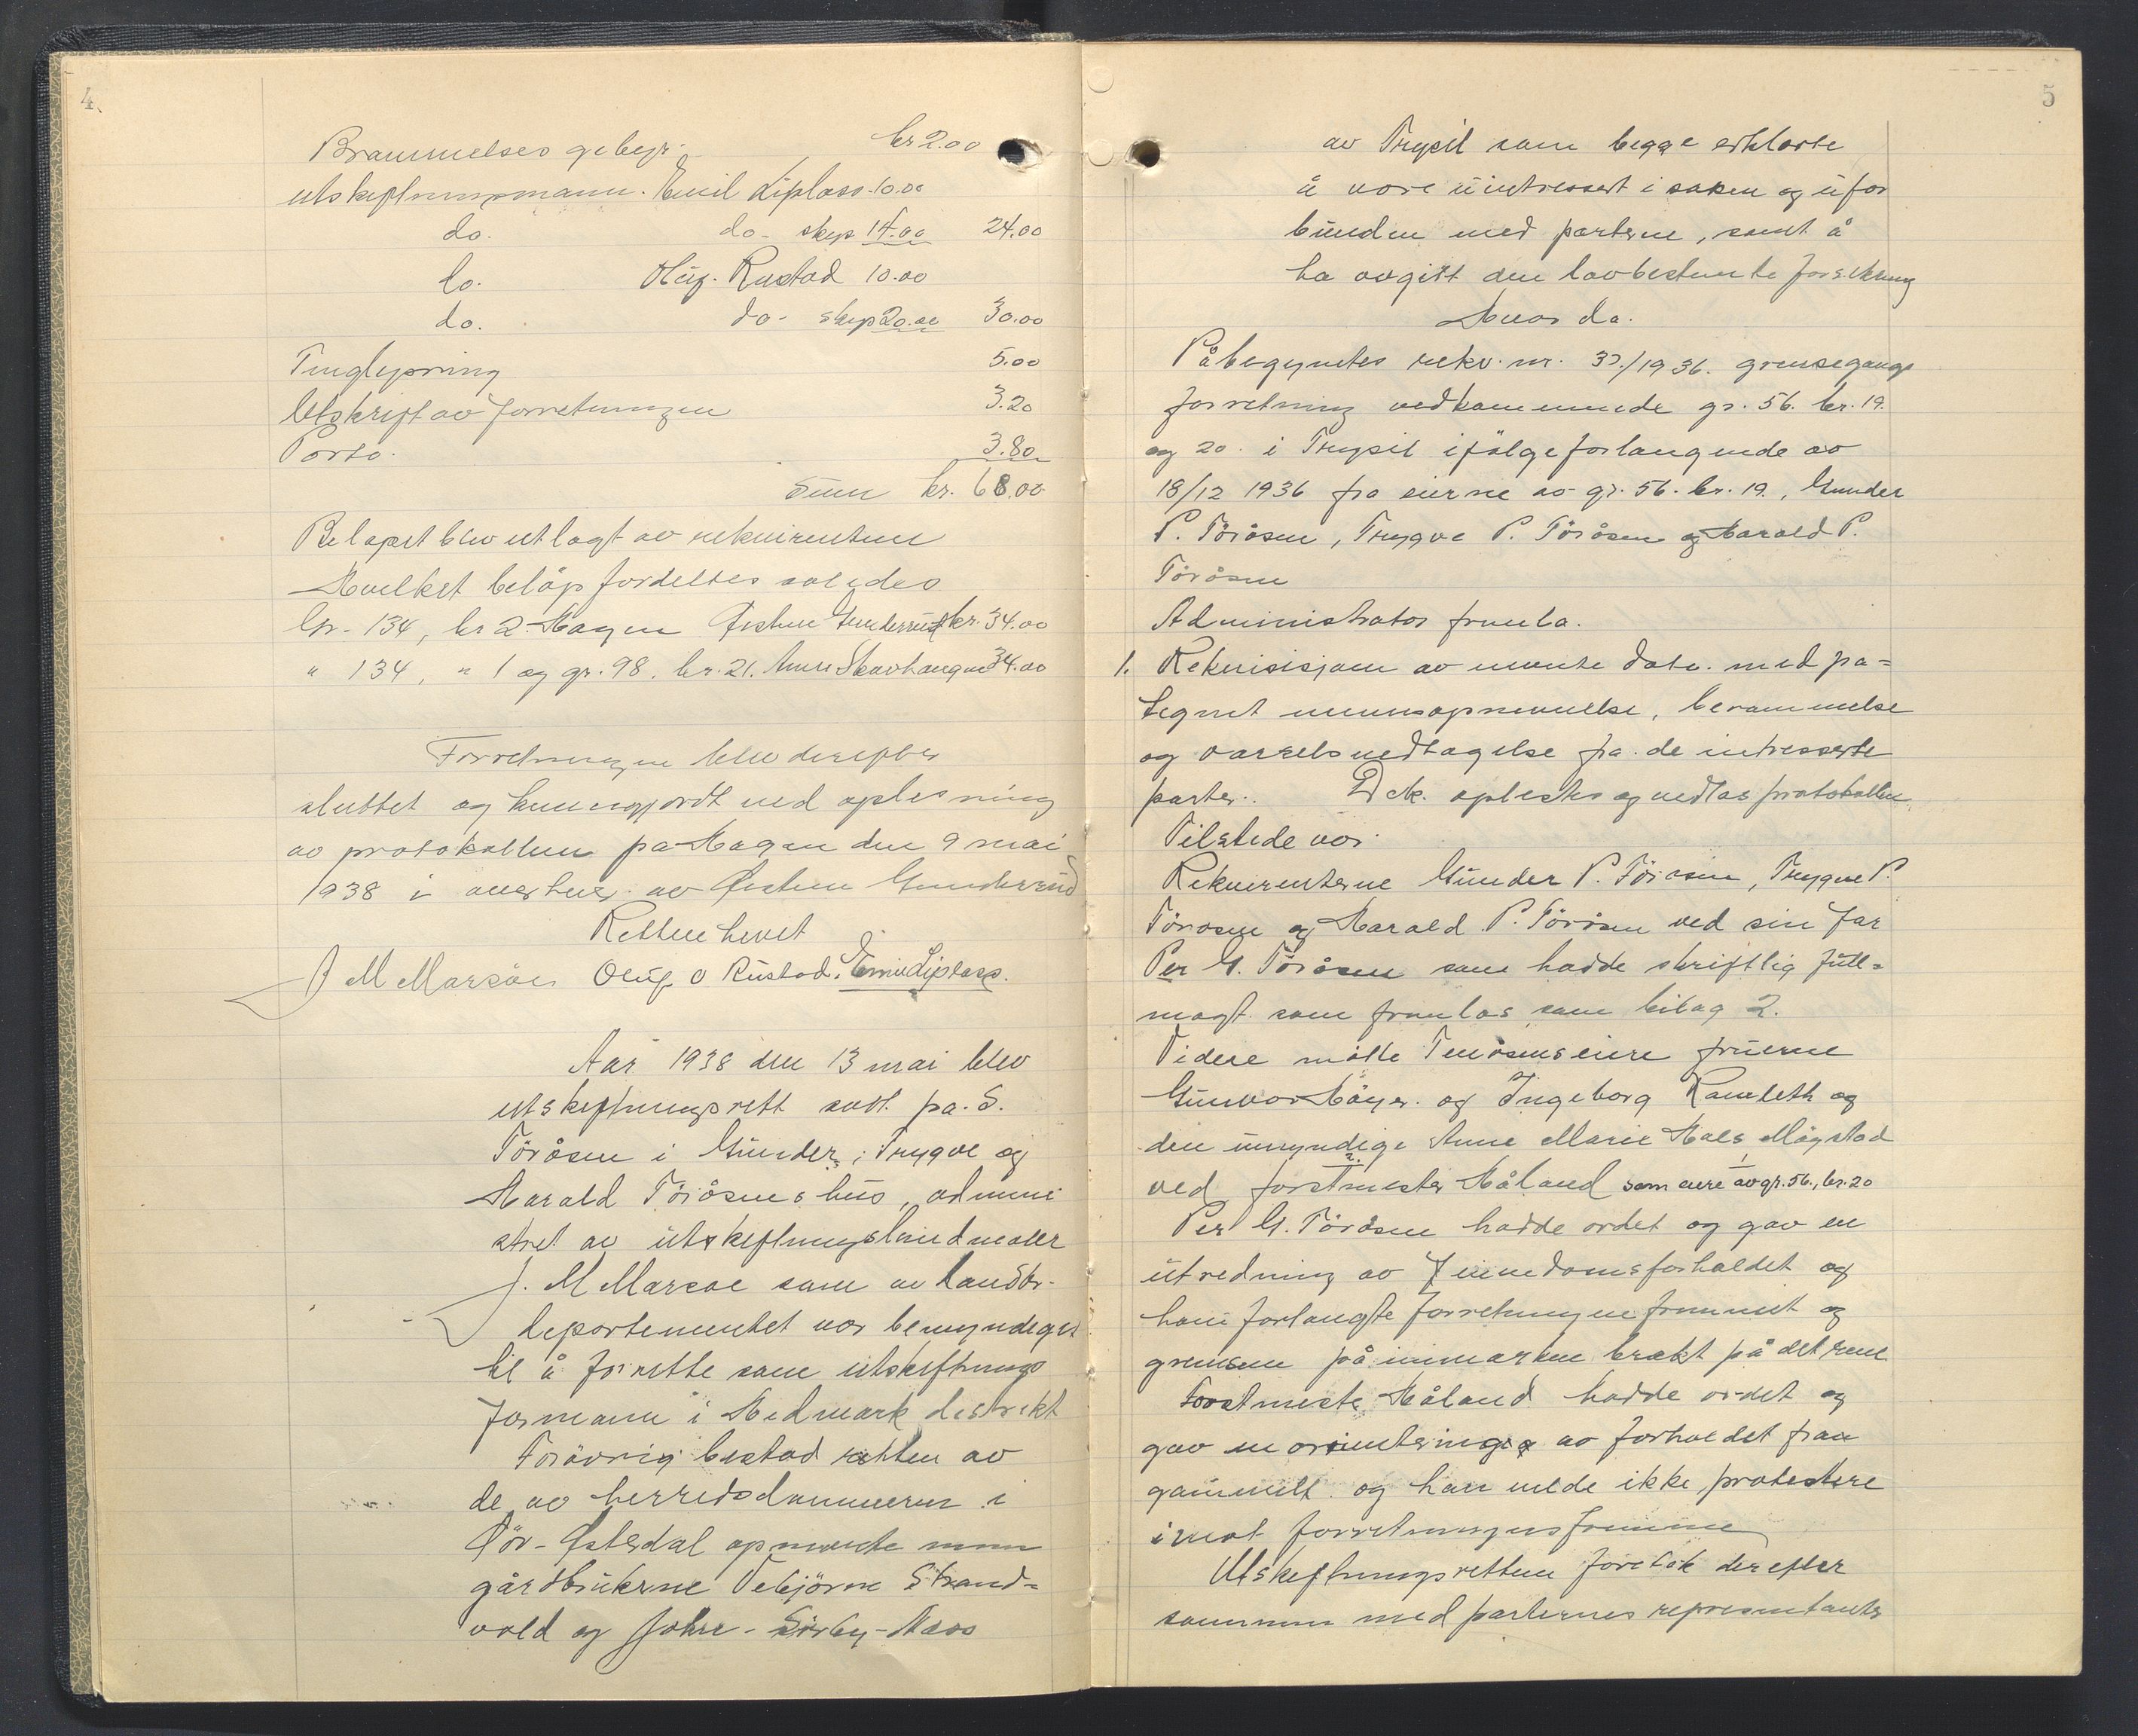 4
Brammelses gebyr. kr 2.00
utskiftningsmann. Emil Liplass 10.00
do. do - skys 14.00 24.00
do. Oluf. Rustad 10.00
do. do - skys 20.00 30.00
Tinglysning 5.00
Utskrift av forretningen 3.20
Porto. 3.80
Sum kr. 68.00
Beløpet blev utlagt av rekvirenten
Hvilket beløp fordeltes således
Gr. 134, br 2. Hagen Østen Gunderrud kr. 34.00
" 134, " 1 og gr. 98. br. 21. 34.00
Forretningen blev derefter
sluttet og kunngjordt ved oplesning
av protokollen på Hagen den 9 mai
1938 i overhver av Østen Gunderrud
Retten hevet
J M Marsöe Oluf O Rustad. Emil Liplass.
Aar 1938 den 13 mai blev
utskiftningsrett satt på S.
Töråsen i Gunder, Trygve og
Harald Töråsens hus, admini
stret av utskiftningslandmåler
J. M Marsøe som av Landbr.
departementet var bemyndiget
til å forrette som utskiftnings
formann i Hedmark distrikt
Forövrig bestod retten av
de av herredsdommeren i
Sör-Østerdal opnevnte menn
gårdbrukerne Tebjörn Strand-
vold og Johre - Sörby - Moss
5
av Trysil som begge erklærte
å være uintressert i saken og ufor
bunden med parterne, samt å
ha avgitt den lovbestemte forsikring
Hvorda.
Påbegyntes rekv. nr. 37/1936. grensegangs
forretning vedkommende gr. 56. br. 19.
og 20. i Trysil ifölge forlangende av
18/12 1936 fra eierne av gr. 56. br. 19., Gunder
P. Töråsen, Trygve P. Töråsen og Harald P.
Töråsen
Administrator fremla.
1. Rekvisisjonen av nevnte dato. med på=
tegnet mennsopnevnelse, berammelse
og varselsvedtagelse fra de intresserte
parter. Dok. oplestes og vedlas protokollen.
Tilstede var.
Rekvirenterne Gunder P. Töråsen, Trygve P.
Töråsen og Harald P. Töråsen ved sin far
Per G. Töråsen som hadde skriftlig full=
magt som fremlas som bilag 2.
Videre mötte eiere fruerne
Gunvor Höyer. og Ingeborg Ramleth og
den umyndige Anne Marie Moes Mågstad
ved forstmester Håland som eiere av gr. 56., br. 20
Per G. Töråsen hadde ordet og gav en
utredning av eiendomsforholdet og
han forlangte forretningen fremmet og
grensen på innmarken brakt på det rene
Forstmester Håland hadde ordet og
gav en orientering av forholdet fran
gammelt og han vilde ikke protestere
imot forretningens fremme
Utskiftningsretten foretok derefter
sammen med parternes representanter